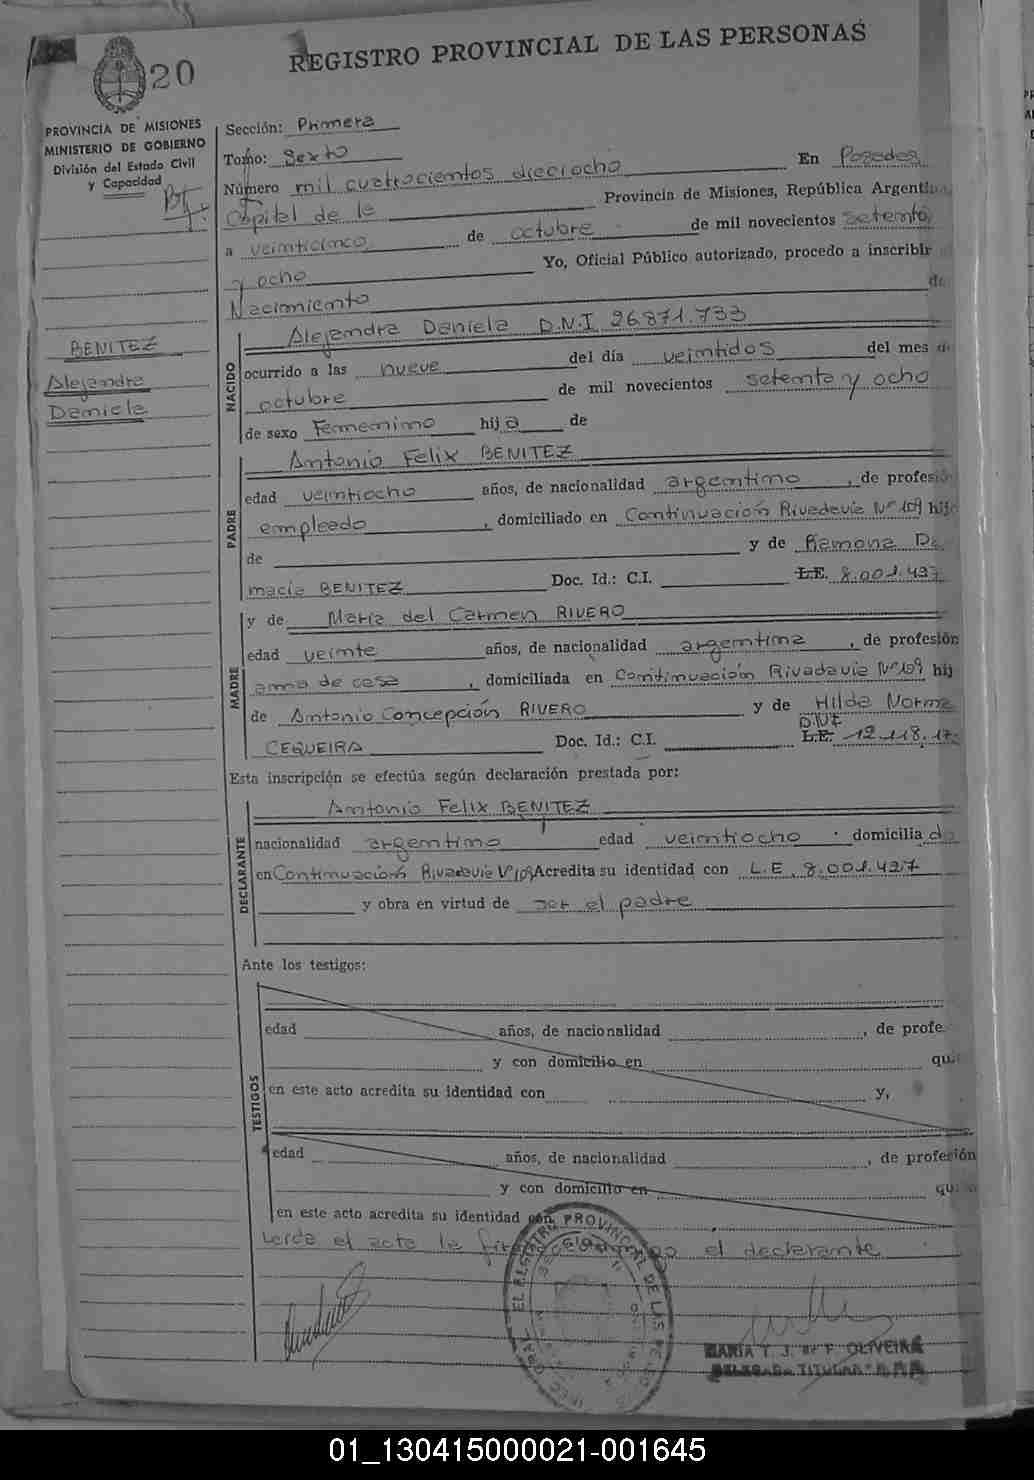 20
REGISTRO PROVINCIAL DE LAS PERSONAS
PROVINCIA DE MISIONES
MINISTERIO DE GOBIERNO
División del Estado Civil
y Capacidad
BENITEZ
Alejandra
Daniela
Sección: Primera
Tomo: Sexto
Número mil cuatrocientos dieciocho En Posadas
Capital de la Provincia de Misiones, República Argentina
a veinticinco de octubre de mil novecientos setenta
y ocho Yo, Oficial Público autorizado, procedo a inscribir
Nacimiento de
NACIDO
Alejandra Daniela D.N.I. 26.871.733
ocurrido a las nueve del día veintidos del mes de
octubre de mil novecientos setenta y ocho
de sexo Femenino hija de
PADRE
Antonio Felix BENITEZ
edad veintiocho años, de nacionalidad argentino, de profesió
empleado, domiciliado en Continuación Rivadavia Nº 109 hijo
de y de Ramona Da
macia BENITEZ Doc. Id.: C.I. L.E. 8.001.427
MADRE
y de María del Carmen RIVERO
edad veinte años, de nacionalidad argentina, de profesión
ama de casa, domiciliada en Continuación Rivadavia Nº 109 hij
de Antonio Concepción RIVERO y de Hilda Norma
D.N.I.
CEQUEIRA Doc. Id.: C.I. L.E. 12.118.17
Esta inscripción se efectúa según declaración prestada por:
DECLARANTE
Antonio Felix BENITEZ
nacionalidad argentino edad veintiocho domiciliado
en Continuación Rivadavia Nº 109 Acredita su identidad con L.E. 8.001.427
y obra en virtud de ser el padre
Ante los testigos:
TESTIGOS
edad años, de nacionalidad, de profe
y con domicilio en qu
en este acto acredita su identidad con y,
edad años, de nacionalidad, de profesión
y con domicilio en qu
en este acto acredita su identidad con
Leída el acta la el declarante
MARIA T. J. DE F. OLIVEIRA
DELEGADA TITULAR
01_130415000021-001645